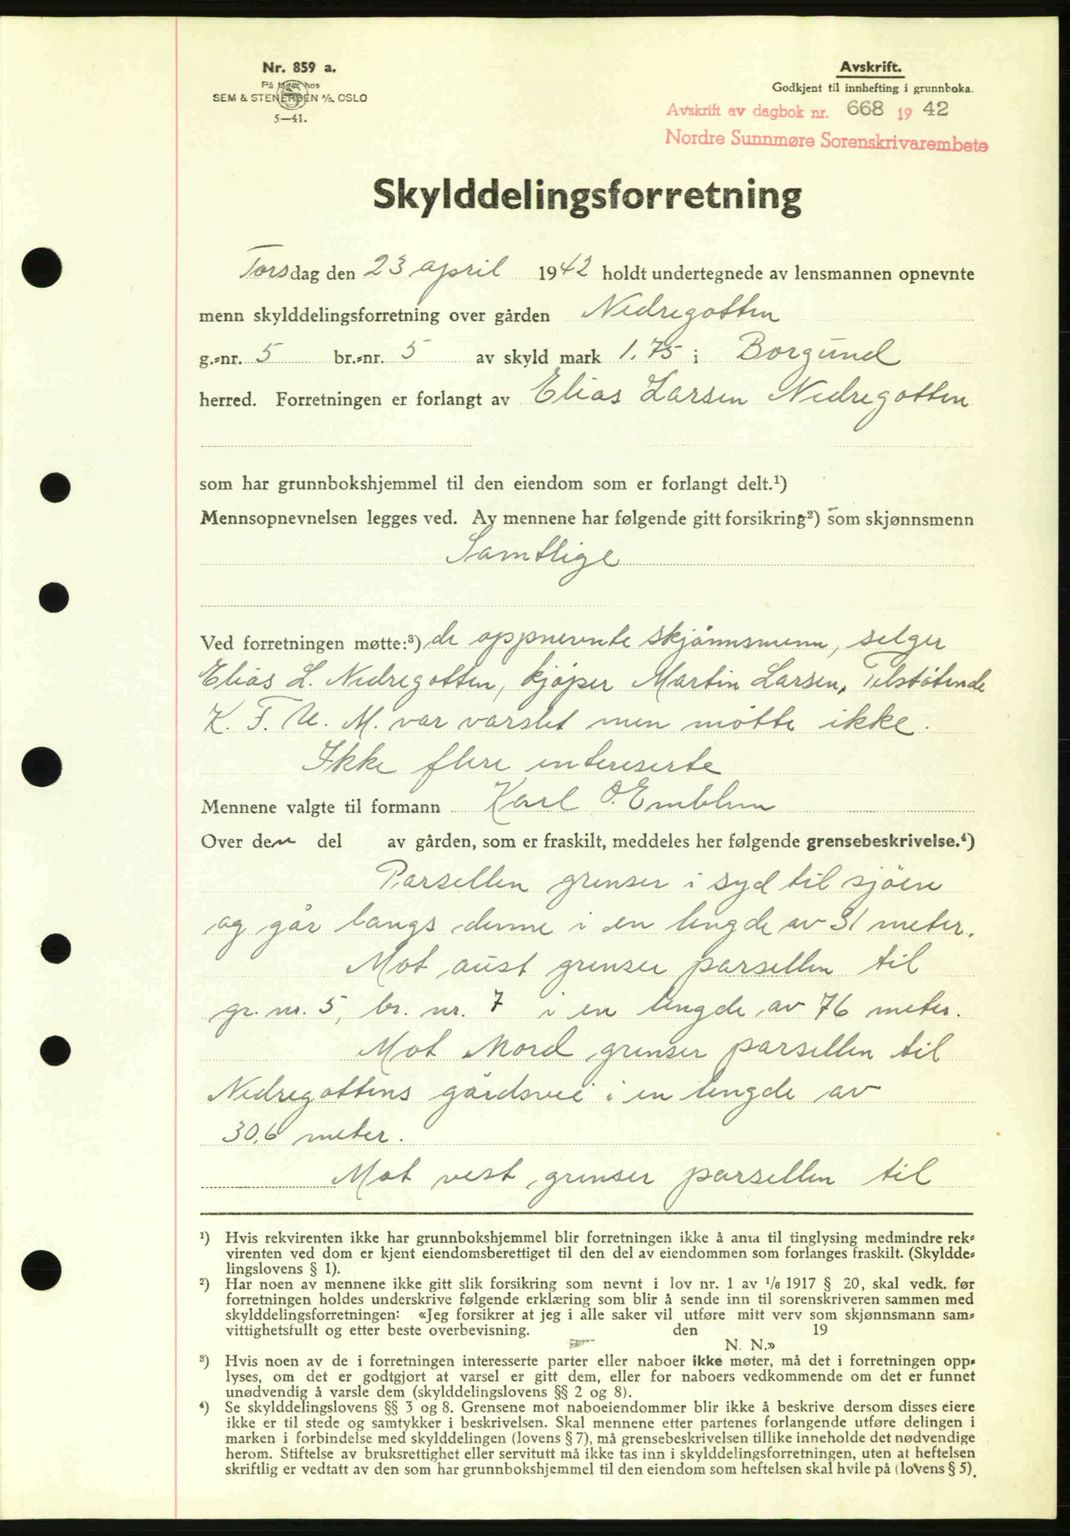 Nr. 859 a.
På lager hos
SEM & STENERSEN A/S, OSLO
5—41.
Avskrift.
Godkjent til innhefting i grunnboka.
Avskrift av dagbok nr. 668 1942
Nordre Sunnmøre Sorenskrivarembete
Skylddelingsforretning
Torsdag den 23 april 1942 holdt undertegnede av lensmannen opnevnte
menn skylddelingsforretning over gården Nedregotten
g.-nr. 5 br.-nr. 5 av skyld mark 1.75 i Borgund
herred. Forretningen er forlangt av Elias Larsen Nedregotten
som har grunnbokshjemmel til den eiendom som er forlangt delt.¹)
Mennsopnevnelsen legges ved. Av mennene har følgende gitt forsikring²) som skjønnsmenn
Samtlige
Ved forretningen møtte:³) de oppnevnte skjönnsmenn, selger
Elias L. Nedregotten, kjöper Martin Larsen, Tilstötende
K. F. U. M. var varslet men mötte ikke.
Ikke flere intereserte
Mennene valgte til formann Karl O. Emblem
Over den del av gården, som er fraskilt, meddeles her følgende grensebeskrivelse.⁴)
Parsellen grenser i syd til sjöen
og går langs denne i en lengde av 31 meter.
Mot aust grenser parsellen til
gr. nr. 5, br. nr. 7 i en lengde av 76 meter.
Mot Nord grenser parsellen til
Nedregottens gårdsvei i en lengde av
30,6 meter.
Mot vest grenser parsellen til
¹) Hvis rekvirenten ikke har grunnbokshjemmel blir forretningen ikke å anta til tinglysing medmindre rek-
virenten ved dom er kjent eiendomsberettiget til den del av eiendommen som forlanges fraskilt. (Skyldde-
lingslovens § 1).
²) Har noen av mennene ikke gitt slik forsikring som nevnt i lov nr. 1 av 1/6 1917 § 20, skal vedk. før
forretningen holdes underskrive følgende erklæring som blir å sende inn til sorenskriveren sammen med
skylddelingsforretningen: «Jeg forsikrer at jeg i alle saker vil utføre mitt verv som skjønnsmann sam-
vittighetsfullt og etter beste overbevisning. den 19
N. N.»
³) Hvis noen av de i forretningen interesserte parter eller naboer ikke møter, må det i forretningen opp-
lyses, om det er godtgjort at varsel er gitt dem, eller for naboers vedkommende om det er funnet
unødvendig å varsle dem (skylddelingslovens §§ 2 og 8).
⁴) Se skylddelingslovens §§ 3 og 8. Grensene mot naboeiendommer blir ikke å beskrive dersom disses eiere
ikke er til stede og samtykker i beskrivelsen. Skal mennene etter partenes forlangende utføre delingen i
marken i forbindelse med skylddelingen (lovens § 7), må grensebeskrivelsen tillike inneholde det nødvendige
herom. Stiftelse av bruksrettighet eller servitutt må ikke tas inn i skylddelingsforretningen, uten at heftelsen
skriftlig er vedtatt av den som har grunnbokshjemmel til den eiendom som heftelsen skal hvile på (lovens § 5).